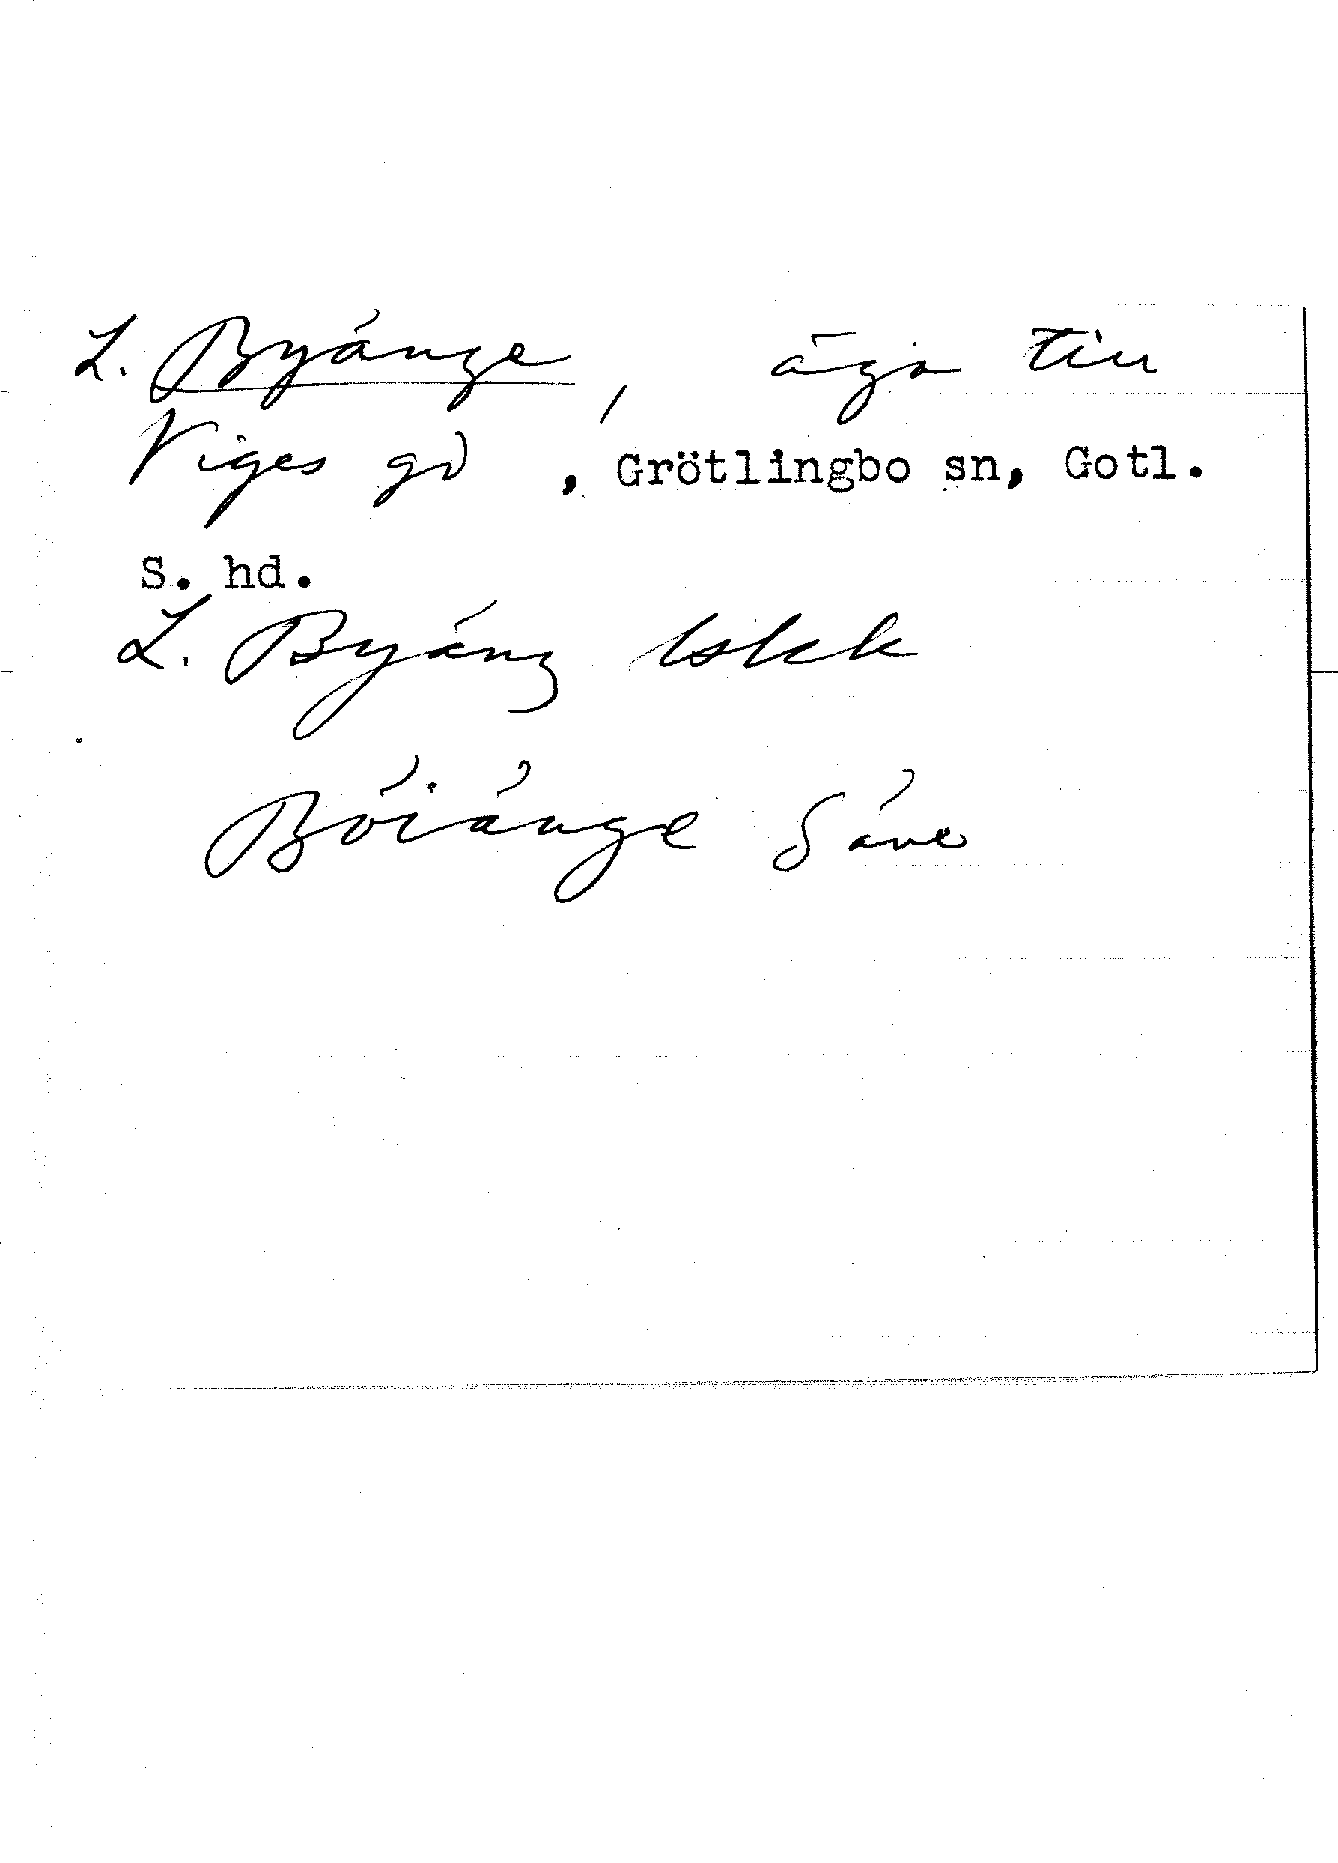 L. Byánge, ägor till
Viges gd, Grötlingbo sn, Gotl.
S. hd.
L. Byáng
Bóiánge Säve